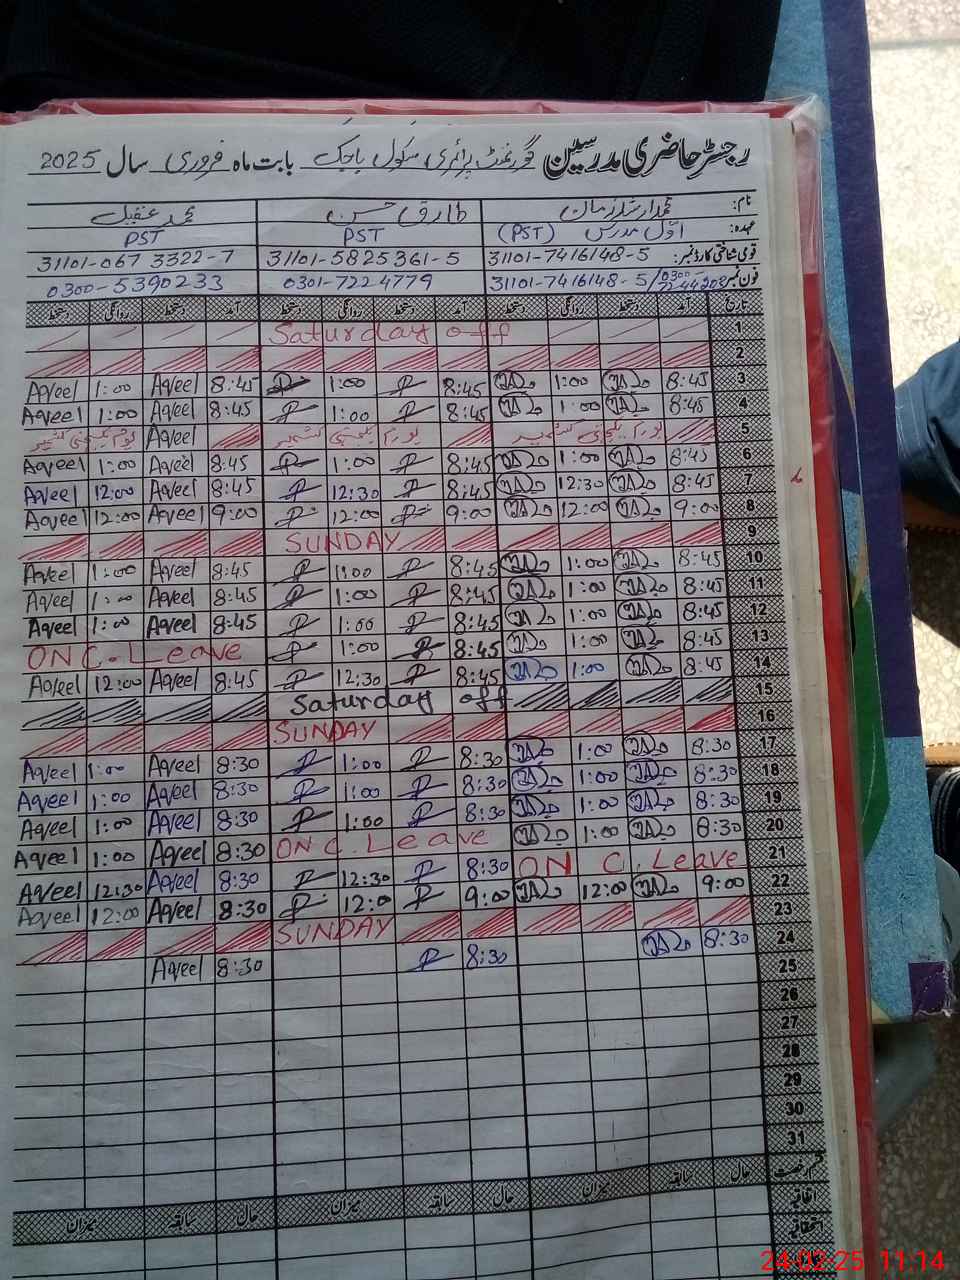 رجسٹر حاضری مدرسین گورنمنٹ پرائمری سکول بابت ماہ فروری سال 2025
نام: طارق حسن محمد عقیل
عہدہ: اوّل مدرس (PST) PST PST
قومی شناختی کارڈ نمبر: 31101-7416148-5 31101-5825361-5 31101-067 3322-7
فون نمبر: 31101-7416148-5 / 0301-7224779 0300-5390233
تاریخ آمد دستخط روانگی دستخط آمد دستخط روانگی دستخط آمد دستخط روانگی دستخط
1 Saturday off
2
3 8:45 1:00 8:45 1:00 8:45 Aqeel 1:00 Aqeel
4 8:45 1:00 8:45 1:00 8:45 Aqeel 1:00 Aqeel
5 یوم یکجہتی کشمیر یوم یکجہتی کشمیر Aqeel یوم یکجہتی کشمیر
6 8:45 1:00 8:45 1:00 8:45 Aqeel 1:00 Aqeel
7 8:45 12:30 8:45 12:30 8:45 Aqeel 12:00 Aqeel
8 9:00 12:00 9:00 12:00 9:00 Aqeel 12:00 Aqeel
9 SUNDAY
10 8:45 1:00 8:45 1:00 8:45 Aqeel 1:00 Aqeel
11 8:45 1:00 8:45 1:00 8:45 Aqeel 1:00 Aqeel
12 8:45 1:00 8:45 1:00 8:45 Aqeel 1:00 Aqeel
13 8:45 1:00 8:45 1:00 ON C. Leave
14 8:45 1:00 8:45 12:30 8:45 Aqeel 12:00 Aqeel
15 Saturday off
16 SUNDAY
17 8:30 1:00 8:30 1:00 8:30 Aqeel 1:00 Aqeel
18 8:30 1:00 8:30 1:00 8:30 Aqeel 1:00 Aqeel
19 8:30 1:00 8:30 1:00 8:30 Aqeel 1:00 Aqeel
20 8:30 1:00 ON C. Leave 8:30 Aqeel 1:00 Aqeel
21 ON C. Leave 8:30 12:30 8:30 Aqeel 12:30 Aqeel
22 9:00 12:00 9:00 12:00 8:30 Aqeel 12:00 Aqeel
23 SUNDAY
24 8:30 8:30 8:30 Aqeel
25
26
27
28
29
30
31
قسم رخصت حال سابقہ میزان حال سابقہ میزان حال سابقہ میزان
اتفاقیہ
استحقاقیہ
24-02-25 11:14